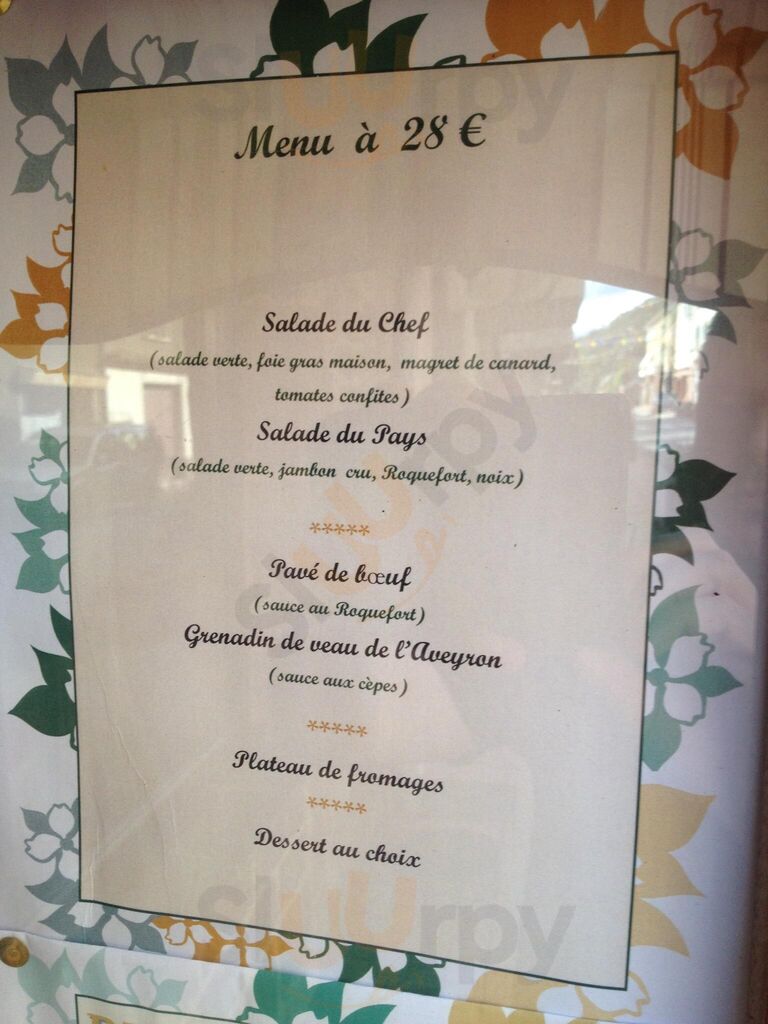 Menu à 28 €
Salade du Chef
(salade verte, foie gras maison, magret de canard,
tomates confites)
Salade du Pays
(salade verte, jambon cru, Roquefort, noix)
*****
Pavé de bœuf
(sauce au Roquefort)
Grenadin de veau de l'Aveyron
(sauce aux cèpes)
*****
Plateau de fromages
*****
Dessert au choix
Sluurpy
Sluurpy
Sluurpy